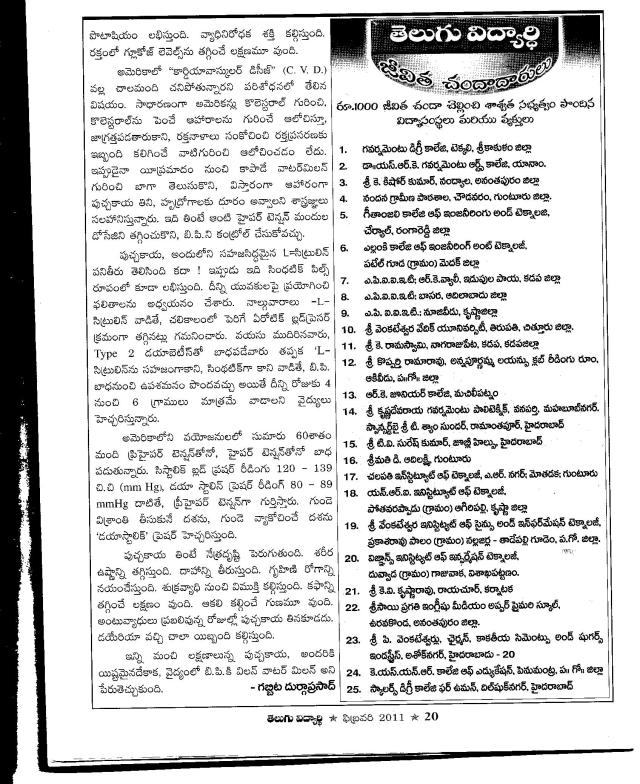 పొటాషియం లభిస్తుంది. వ్యాధినిరోధక శక్తి కల్గిస్తుంది.
రక్తంలో గ్లూకోజ్ లెవెల్స్‌ను తగ్గించే లక్షణమూ వుంది.
అమెరికాలో "కార్డియావాస్కులర్ డిసీజ్" (C. V. D.)
వల్ల చాలమంది చనిపోతున్నారని పరిశోధనలో తేలిన
విషయం. సాధారణంగా అమెరికన్లు కొలెస్టరాల్ గురించి,
కొలెస్టరాల్‌ను పెంచే ఆహారాలను గురించే ఆలోచిస్తూ,
జాగ్రత్తపడతారుకాని, రక్తనాళాలు సంకోచించి రక్తప్రసరణకు
ఇబ్బంది కలిగించే వాటిగురించి ఆలోచించడం లేదు.
ఇప్పుడైనా యీప్రమాదం నుంచి కాపాడే వాటర్‌మిలన్
గురించి బాగా తెలుసుకొని, విస్తారంగా ఆహారంగా
పుచ్చకాయ తిని, హృద్రోగాలకు దూరం అవ్వాలని శాస్త్రజ్ఞులు
సలహానిస్తున్నారు. ఇది తింటే ఆంటి హైపర్ టెన్షన్ మందుల
డోసేజిని తగ్గించుకొని, బి.పి.ని కంట్రోల్ చేసుకోవచ్చు.
పుచ్చకాయ, అందులోని సహజసిద్ధమైన L=సిట్రులిన్
పనితీరు తెలిసింది కదా ! ఇప్పుడు ఇది సింథటిక్ పిల్స్
రూపంలో కూడా లభిస్తుంది. దీన్ని యువకులపై ప్రయోగించి
ఫలితాలను అధ్యయనం చేశారు. నాల్గువారాలు -L-
సిట్రులిన్ వాడితే, చలికాలంలో పెరిగే ఏరోటిక్ బ్లడ్‌ప్రెసర్
క్రమంగా తగ్గినట్లు గమనించారు. వయసు ముదిరినవారు,
Type 2 డయాబెటీస్‌తో బాధపడేవారు తప్పక 'L-
సిట్రులిన్‌ను సహజంగాకాని, సింథటిక్‌గా కాని వాడితే, బి.పి.
బాధనుంచి ఉపశమనం పొందవచ్చు అయితే దీన్ని రోజుకు 4
నుంచి 6 గ్రాములు మాత్రమే వాడాలని వైద్యులు
హెచ్చరిస్తున్నారు.
అమెరికాలోని వయోజనులలో సుమారు 60శాతం
మంది ప్రిహైపర్ టెన్షన్‌తోనో, హైపర్ టెన్షన్‌తోనో బాధ
పడుతున్నారు. సిస్టాలిక్ బ్లడ్ ప్రెషర్ రీడింగు 120 - 139
చి.చి (mm Hg), డయా స్టాలిన్ ప్రెషర్ రీడింగ్ 80 - 89
mmHg దాటితే, ప్రీహైపర్ టెన్షన్‌గా గుర్తిస్తారు. గుండె
విశ్రాంతి తీసుకునే దశను, గుండె వ్యాకోచించే దశను
'డయాస్టాలిక్' ప్రెషర్ హెచ్చరిస్తుంది.
పుచ్చకాయ తింటే నేత్రదృష్టి పెరుగుతుంది. శరీర
ఉష్ణాన్ని తగ్గిస్తుంది. దాహాన్ని తీరుస్తుంది. గృహిణి రోగాన్ని
నయంచేస్తుంది. శుక్రవ్యాధి నుంచి విముక్తి కల్గిస్తుంది. కఫాన్ని
తగ్గించే లక్షణం వుంది. ఆకలి కల్గించే గుణమూ వుంది.
అంటువ్యాధులు ప్రబలివున్న రోజుల్లో పుచ్చకాయ తినకూడదు.
డయేరియా వచ్చి చాలా యిబ్బంది కల్గిస్తుంది.
ఇన్ని మంచి లక్షణాలున్న పుచ్చకాయ, అందరికి
యిష్టమైనదేకాక, వైద్యంలో బి.పి.కి విలన్ వాటర్ మిలన్ అని
పేరుతెచ్చుకుంది.
- గబ్బిట దుర్గాప్రసాద్
తెలుగు విద్యార్థి
జీవిత చందాదారులు
రూ.1000 జీవిత చందా చెల్లించి శాశ్వత సభ్యత్వం పొందిన
విద్యాసంస్థలు మరియు వ్యక్తులు
1. గవర్నమెంటు డిగ్రీ కాలేజి, టెక్కలి, శ్రీకాకుళం జిల్లా
2. డా౹౹యస్.ఆర్.కె. గవర్నమెంటు ఆర్ట్స్ కాలేజి, యానాం.
3. శ్రీ కె. కిషోర్ కుమార్, నంద్యాల, అనంతపురం జిల్లా
4. నందన గ్రామీణ పాఠశాల, చౌడవరం, గుంటూరు జిల్లా.
5. గీతాంజలి కాలేజి ఆఫ్ ఇంజనీరింగు అండ్ టెక్నాలజి,
చేర్యాల్, రంగారెడ్డి జిల్లా
6. ఎల్లంకి కాలేజి ఆఫ్ ఇంజనీరింగ్ అంట్ టెక్నాలజీ,
పటేల్ గూడ (గ్రామం) మెదక్ జిల్లా
7. ఎ.పి.ఐ.ఐ.ఐ.టి; ఆర్.కె.వ్యాలీ, ఇడుపుల పాయ, కడప జిల్లా
8. ఎ.పి.ఐ.ఐ.ఐ.టి; బాసర, ఆదిలాబాదు జిల్లా
9. ఎ.పి. ఐ.ఐ.ఐ.టి.; నూజివీడు, కృష్ణాజిల్లా
10. శ్రీ వెంకటేశ్వర వేదిక్ యూనివర్శిటీ, తిరుపతి, చిత్తూరు జిల్లా.
11. శ్రీ కె. రామస్వామి, నాగరాజుపేట, కడప, కడపజిల్లా
12. శ్రీ కొప్పర్తి రామారావు, అన్నపూర్ణమ్మ లయన్సు క్లబ్ రీడింగు రూం,
ఆకివీడు, ప౹౹గో౹౹ జిల్లా
13. ఆర్.కె. జూనియర్ కాలేజి, మచిలీపట్నం
14. శ్రీ కృష్ణదేవరాయ గవర్నమెంటు పాలిటెక్నిక్, వనపర్తి, మహబూబ్‌నగర్.
స్పాన్సర్డ్‌బై శ్రీ టి. శ్యాం సుందర్, రామాంతపూర్, హైదరాబాద్
15. శ్రీ టి.వి. సురేష్ కుమార్, జూబ్లీ హిల్సు, హైదరాబాద్
16. శ్రీమతి డి. ఆదిలక్ష్మి, గుంటూరు
17. చలపతి ఇన్‌స్టిట్యూట్ ఆఫ్ టెక్నాలజీ, ఎ.ఆర్. నగర్; మోతడక; గుంటూరు
18. యన్.ఆర్.ఐ. ఇనిస్టిట్యూట్ ఆఫ్ టెక్నాలజీ,
పోతవరప్పాడు (గ్రామం) ఆగిరిపల్లి, కృష్ణా జిల్లా
19. శ్రీ వెంకటేశ్వర ఇనిస్టిట్యూట్ ఆఫ్ సైన్సు అండ్ ఇన్‌ఫర్‌మేషన్ టెక్నాలజీ,
ప్రకాశరావు పాలం (గ్రామం) నల్లజర్ల - తాడేపల్లి గూడెం, ప.గో. జిల్లా.
20. విజ్ఞాన్స్ ఇనిస్టిట్యూట్ ఆఫ్ ఇన్ఫర్మేషన్ టెక్నాలజీ,
దువ్వాడ (గ్రామం) గాజువాక, విశాఖపట్టణం.
21. శ్రీ కె.వి. కృష్ణారావు, రాయచూర్, కర్నాటక
22. శ్రీసాయి ప్రగతి ఇంగ్లీషు మీడియం అప్పర్ ప్రైమరి స్కూల్,
ఉరవకొండ, అనంతపురం జిల్లా.
23. శ్రీ పి. వెంకటేశ్వర్లు, ఛైర్మన్, కాకతీయ సిమెంట్సు అండ్ షుగర్స్
ఇండస్ట్రీస్, అశోక్‌నగర్, హైదరాబాదు - 20
24. కె.యన్.యన్.ఆర్. కాలేజి ఆఫ్ ఎడ్యుకేషన్, పెనుమంట్ర, ప౹౹ గో౹౹ జిల్లా
25. స్కాలర్స్ డిగ్రీ కాలేజి ఫర్ ఉమన్, దిల్‌షుక్‌నగర్, హైదరాబాద్
తెలుగు విద్యార్థి ★ ఫిబ్రవరి 2011 ★ 20